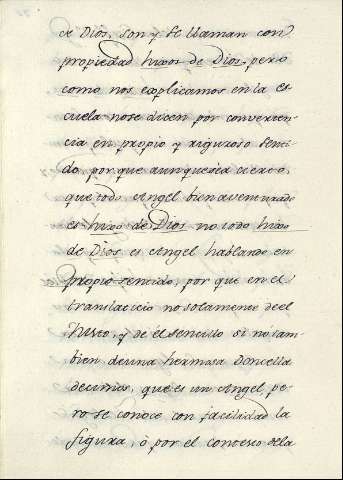 de Dios, son y se llaman con
propiedad hixos de Dios, pero
como nos explicamos en la es
cuela no se dicen por converten
cia en propio y riguroso senti
do, por que aunque sea cierto,
que todo Angel bienaventurado
es hixo de Dios no todo hixo
de Dios es Angel hablando en
propio sentido, por que en el
translaticio no solamente de el
Justo, y de el sencillo si no tam
bien de una hermosa Doncella
decimos, que es un Angel, pe
ro se conoce con facilidad la
figura, ò por el contexto de la